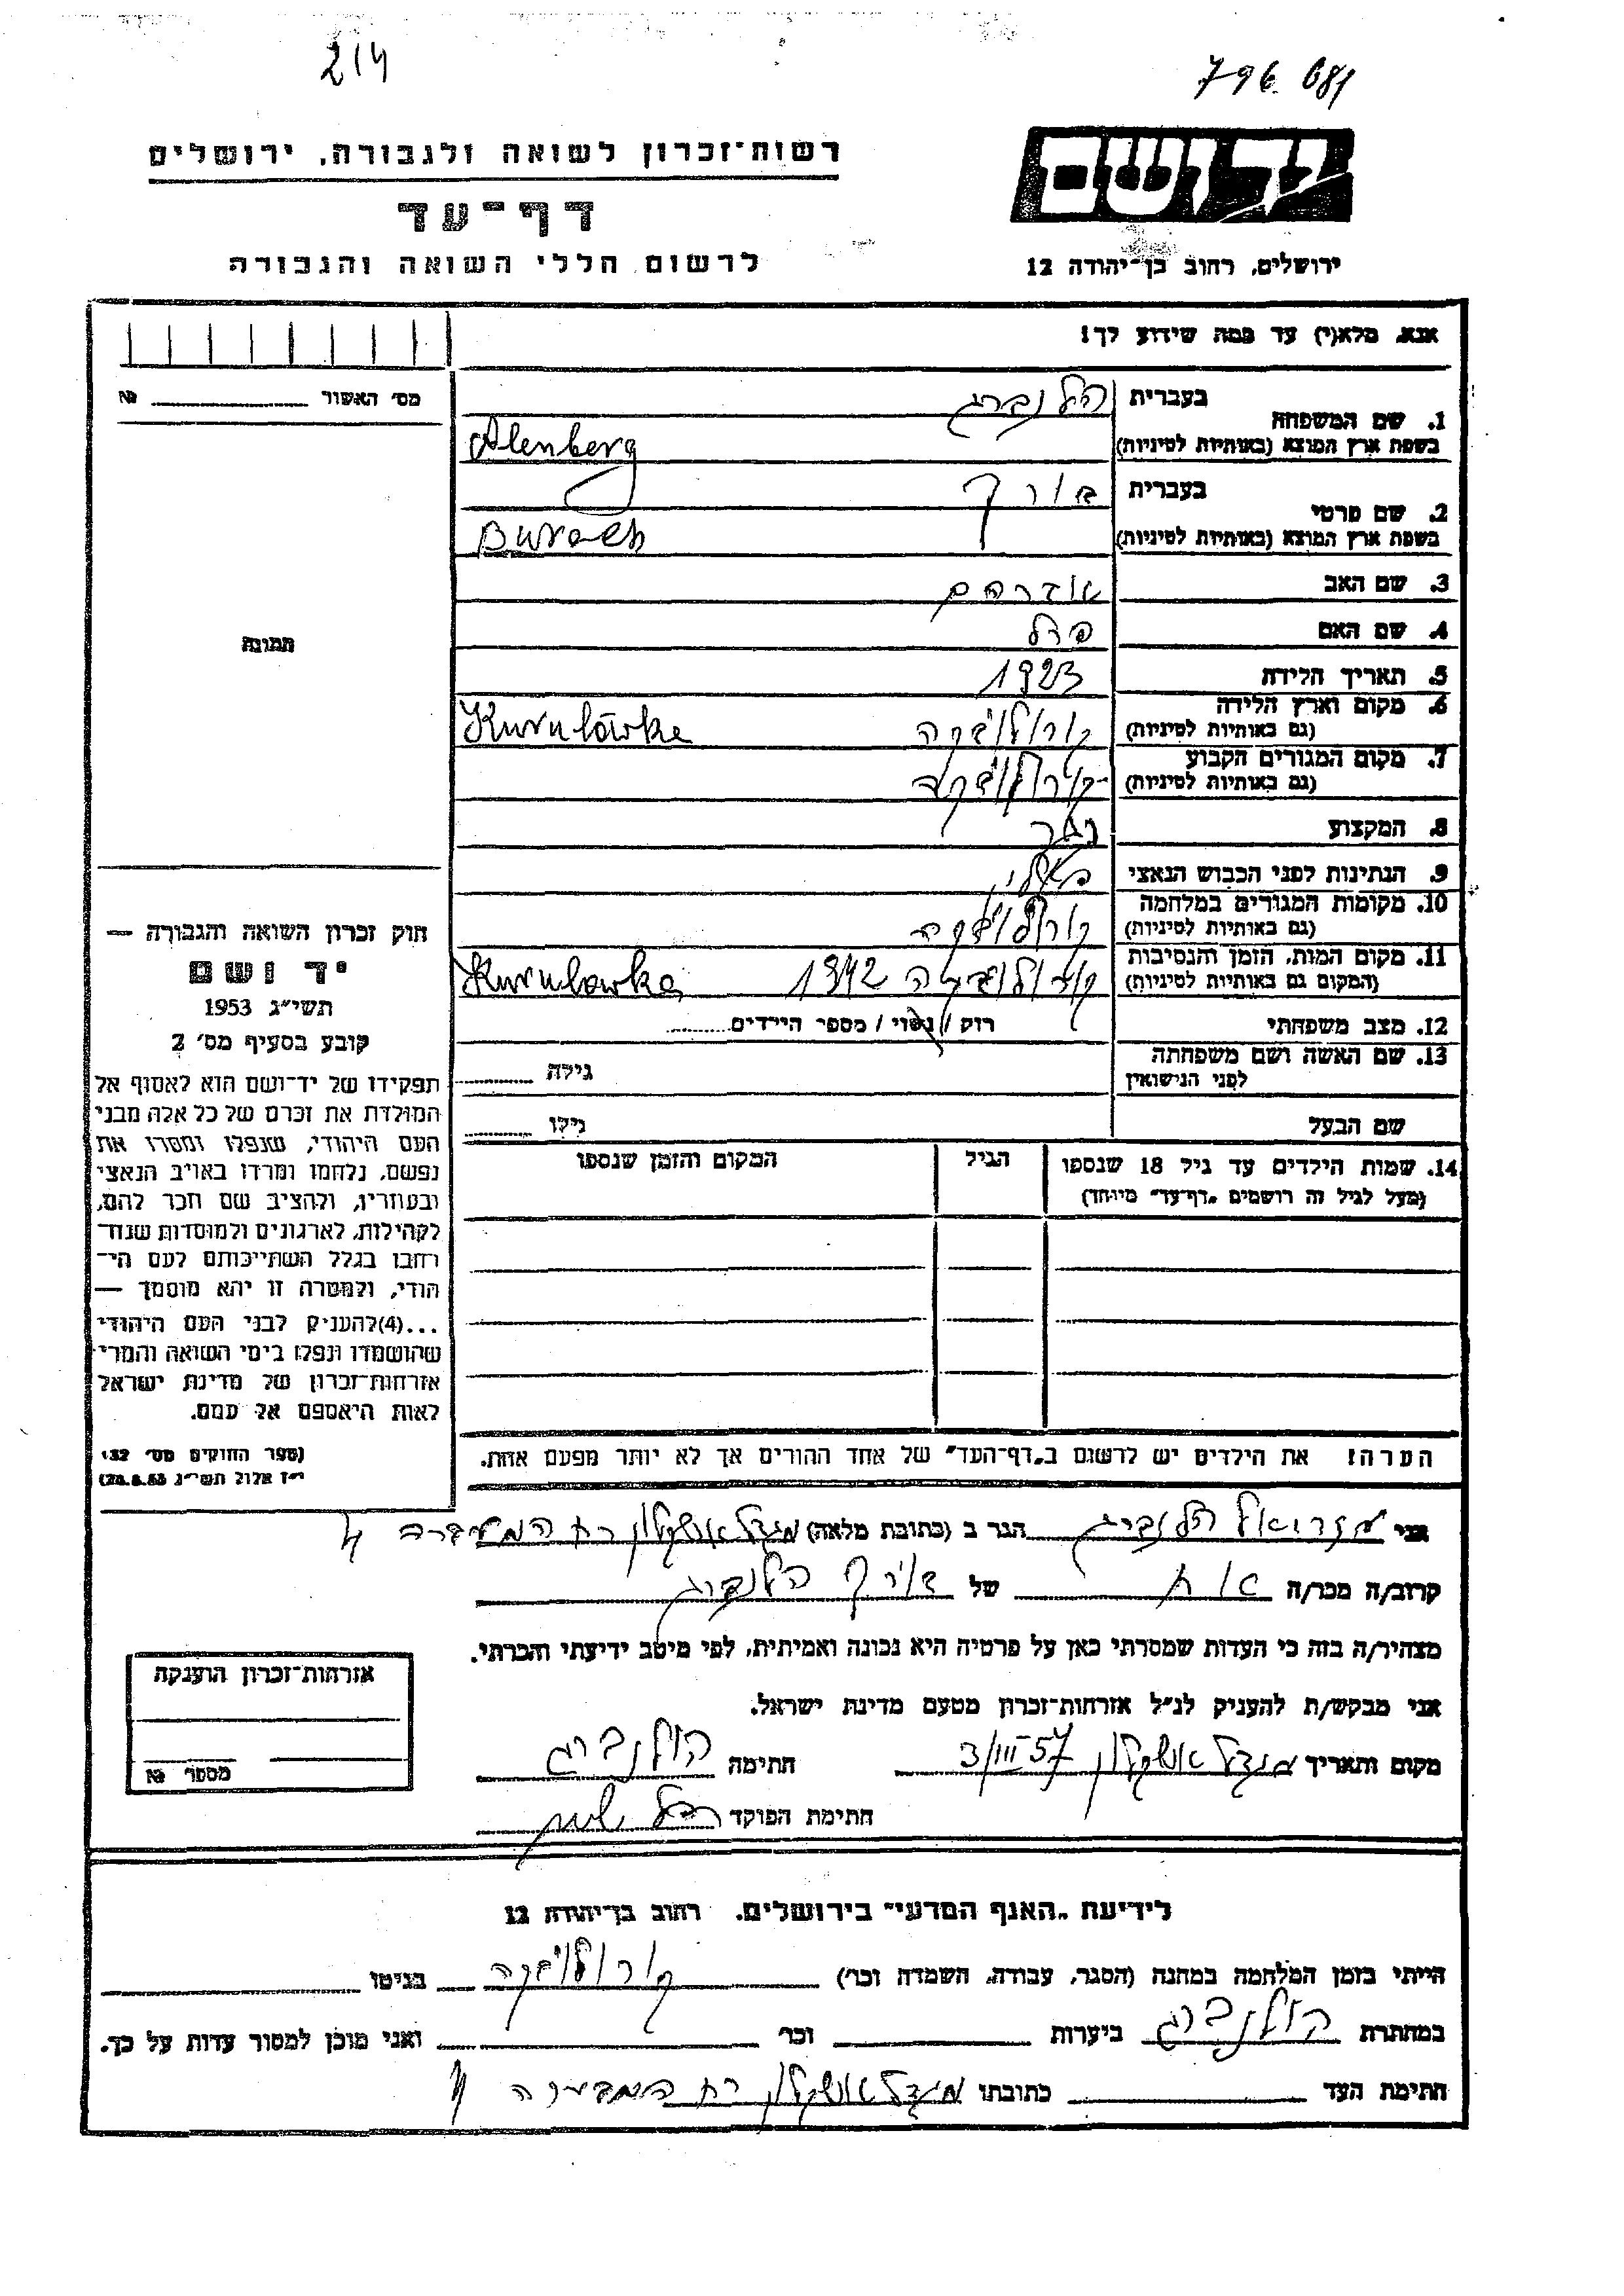 214
796.081
רשות־זכרון לשואה ולגבורה, ירושלים
יד ושם
דף־עד
לרשום חללי השואה והגבורה
ירושלים, רחוב בן־יהודה 12
אנא, מלא(י) עד כמה שידוע לך!
מס׳ האשור № ________
1. שם המשפחה בעברית הלנברג
בשפת ארץ המוצא (באותיות לטיניות) Alenberg
2. שם פרטי בעברית בורך
בשפת ארץ המוצא (באותיות לטיניות) Burach
3. שם האב אברהם
4. שם האם
תמונה
5. תאריך הלידה 1923
6. מקום וארץ הלידה
(גם באותיות לטיניות) קורולובקה Kurulówka
7. מקום המגורים הקבוע
(גם באותיות לטיניות) קורולובקה
8. המקצוע
9. הנתינות לפני הכבוש הנאצי
10. מקומות המגורים במלחמה
(גם באותיות לטיניות) קורולובקה
11. מקום המות, הזמן והנסיבות
(המקום גם באותיות לטיניות) קורולובקה 1942 Kurulowka
12. מצב משפחתי רווק / נשוי / מספר הילדים........
13. שם האשה ושם משפחתה
לפני הנישואין גילה ........
שם הבעל גילו ........
14. שמות הילדים עד גיל 18 שנספו הגיל המקום והזמן שנספו
(מעל לגיל זה רושמים „דף־עד״ מיוחד)
חוק זכרון השואה והגבורה —
יד ושם
תשי״ג 1953
קובע בסעיף מס׳ 2
תפקידו של יד־ושם הוא לאסוף אל
המולדת את זכרם של כל אלה מבני
העם היהודי, שנפלו ומסרו את
נפשם, נלחמו ומרדו באויב הנאצי
ובעוזריו, ולהציב שם וזכר להם,
לקהילות, לארגונים ולמוסדות שנח־
רחבו בגלל השתייכותם לעם הי־
הודי, ולמטרה זו יהא מוסמך —
...(4) להעניק לבני העם היהודי
שהושמדו ונפלו בימי השואה והמרי
אזרחות־זכרון של מדינת ישראל
לאות היאספם אל עמם.
(ספר החוקים מס׳ 132,
י״ז אלול תשי״ג 28.8.53)
הערה! את הילדים יש לרשום ב„דף־העד״ של אחד ההורים אך לא יותר מפעם אחת.
אני עזריאל הלנברג הגר ב (כתובת מלאה) מגדל אשקלון רח המעברה 4
קרוב/ה מכר/ה אח של בורך הלנברג
מצהיר/ה בזה כי העדות שמסרתי כאן על פרטיה היא נכונה ואמיתית, לפי מיטב ידיעתי והכרתי.
אני מבקש/ת להעניק לנ״ל אזרחות־זכרון מטעם מדינת ישראל.
מקום ותאריך מגדל אשקלון 3/III 57 חתימה הולנברג
חתימת הפוקד
אזרחות־זכרון הוענקה
מספר №
לידיעת „האגף המדעי״ בירושלים, רחוב בן־יהודה 12
הייתי בזמן המלחמה במחנה (הסגר, עבודה, השמדה וכו׳) קורולובקה בגיטו
במחתרת הולנברג ביערות וכו׳ ואני מוכן למסור עדות על כך.
חתימת העד כתובתו מגדל אשקלון רח המעברה 4